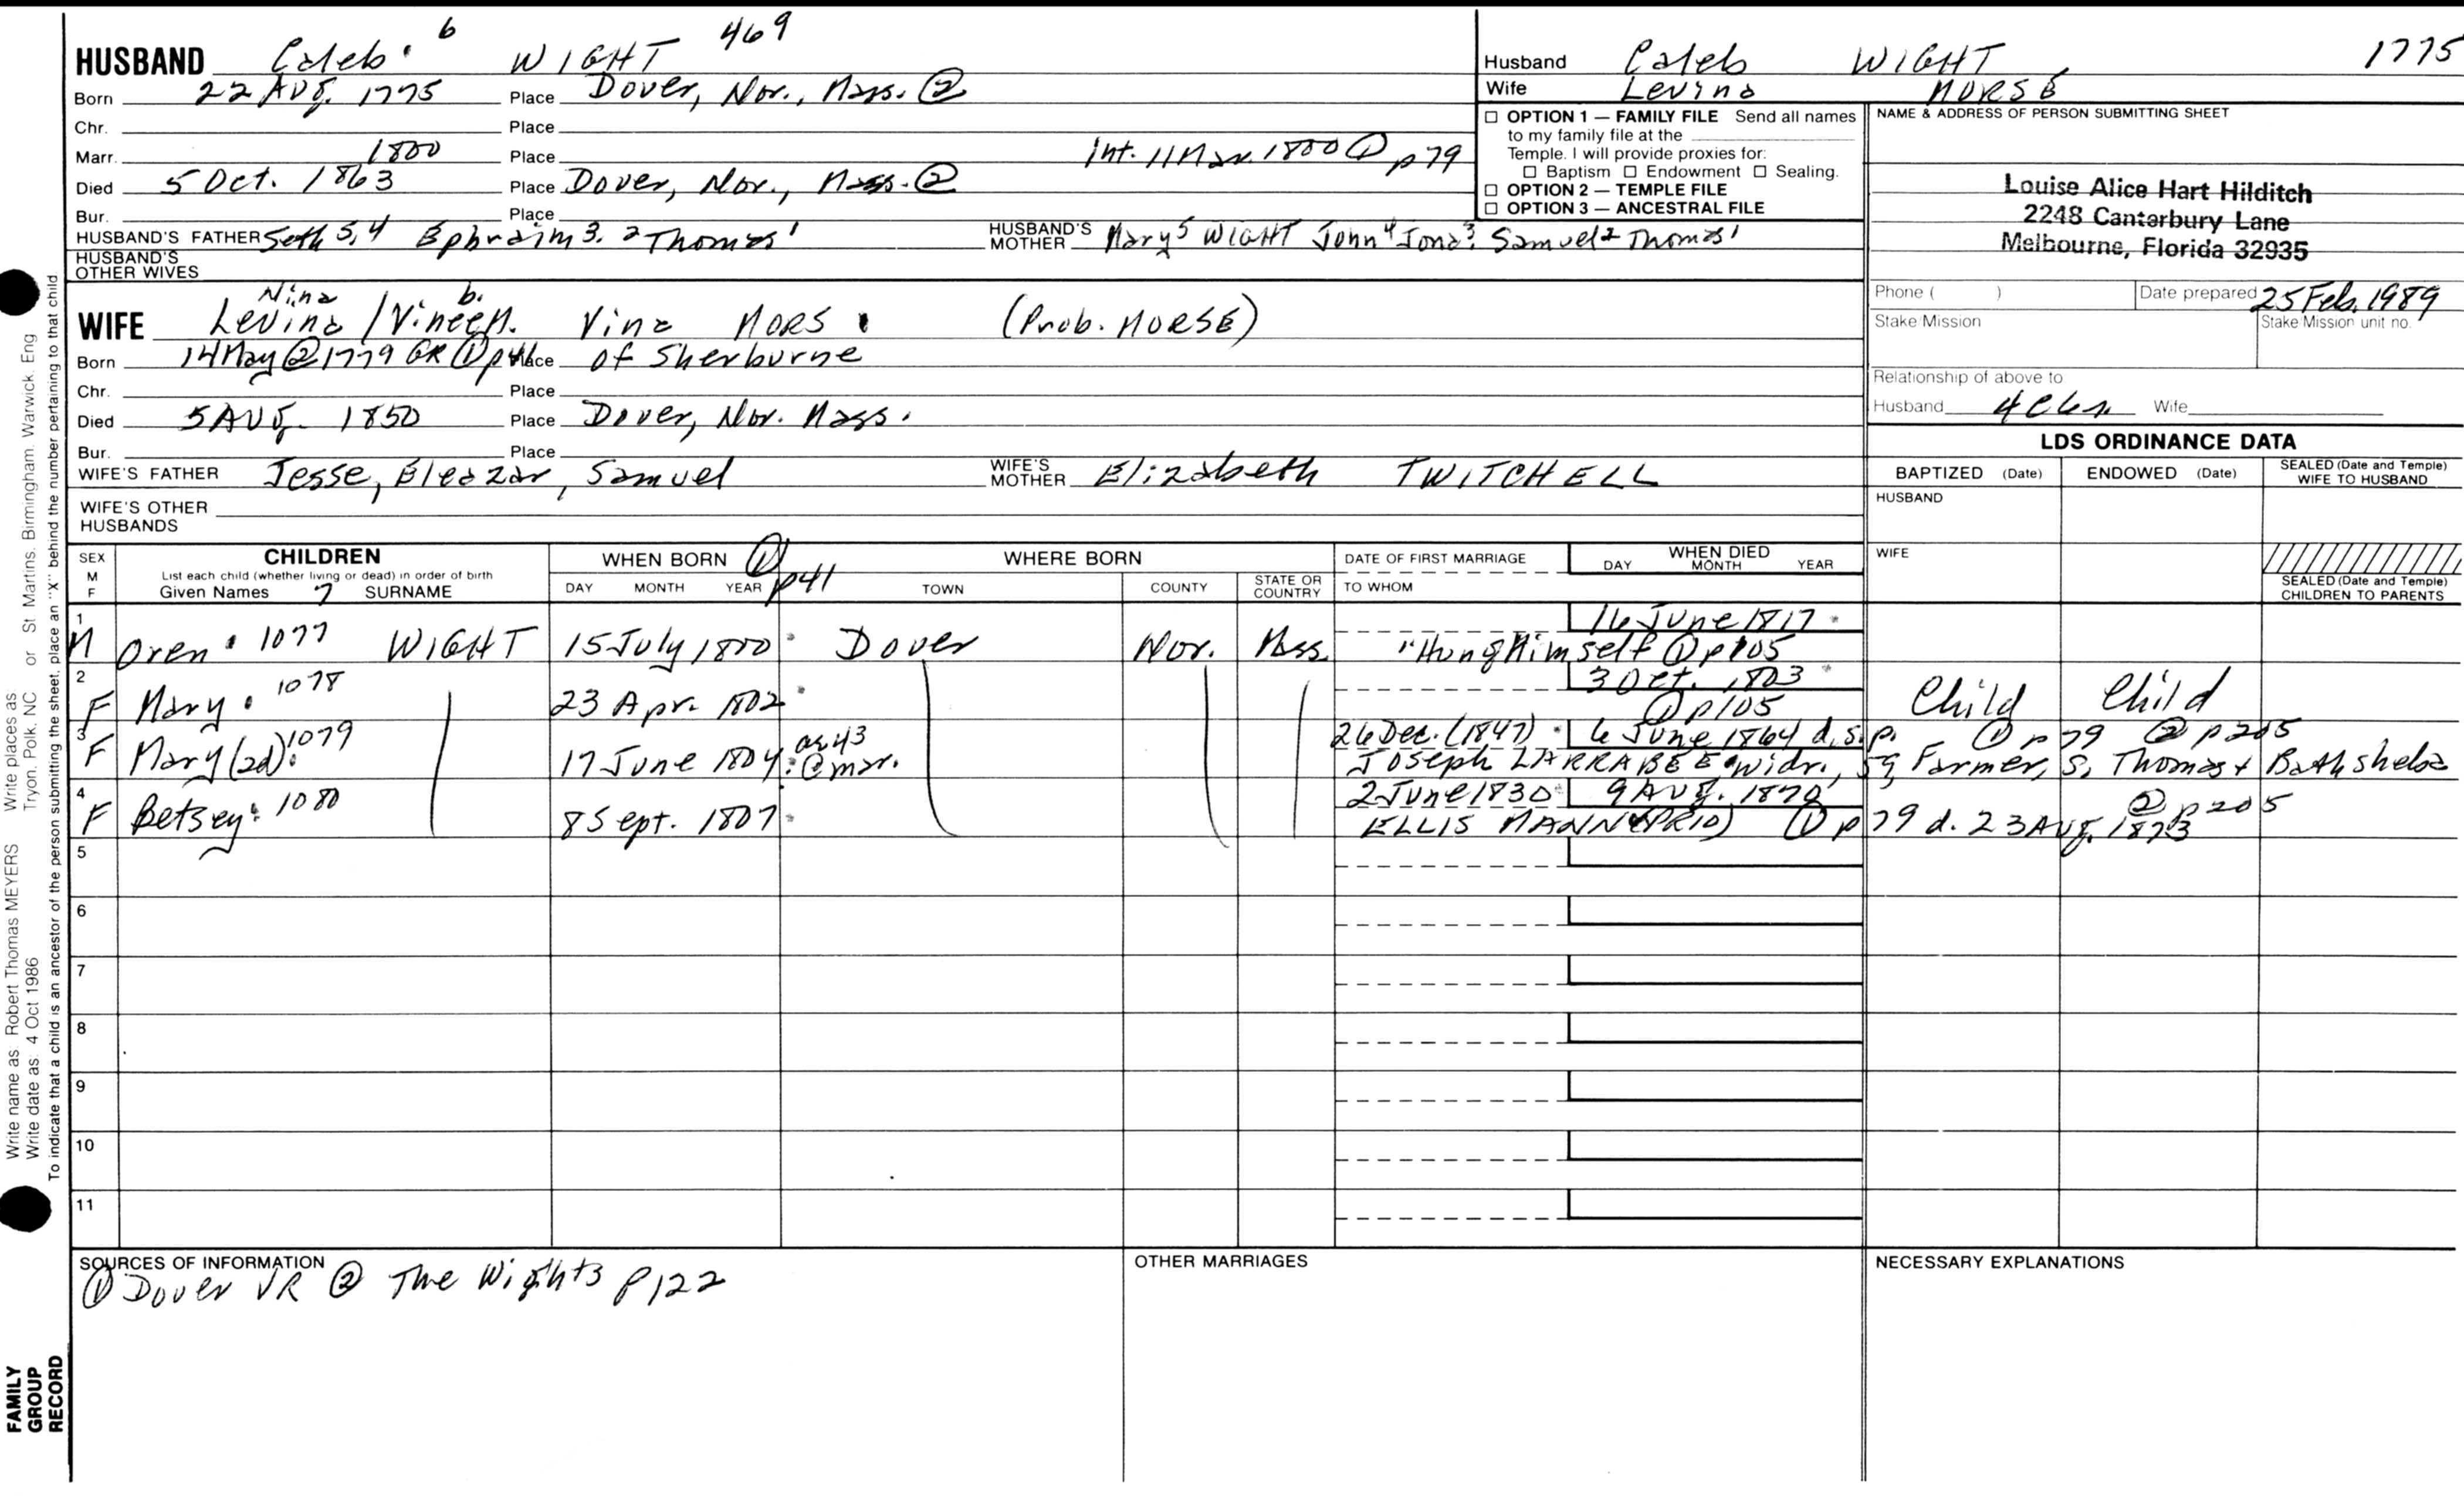 HUSBAND Caleb 6 WIGHT 469
Born 22 AUG. 1775 Place Dover, Nor., Mass. ②
Chr. Place
Marr. 1800 Place Int. 11 Mar. 1800 ① p79
Died 5 Oct. 1863 Place Dover, Nor., Mass. ②
Bur. Place
HUSBAND'S FATHER Seth 5,4 Ephraim 3, 2 Thomas 1 HUSBAND'S MOTHER Mary 5 WIGHT John 4 Jona 3, Samuel 2 Thomas 1
HUSBAND'S OTHER WIVES
Husband Caleb WIGHT 1775
Wife Levina MORSE
☐ OPTION 1 — FAMILY FILE Send all names
to my family file at the
Temple. I will provide proxies for:
☐ Baptism ☐ Endowment ☐ Sealing.
☐ OPTION 2 — TEMPLE FILE
☐ OPTION 3 — ANCESTRAL FILE
NAME & ADDRESS OF PERSON SUBMITTING SHEET
Louise Alice Hart Hilditch
2248 Canterbury Lane
Melbourne, Florida 32935
Phone ( ) Date prepared 25 Feb. 1989
Stake Mission Stake Mission unit no.
Relationship of above to
Husband Wife
Nina b.
WIFE Levina / Vina MORS (Prob. MORSE)
Born 14 May ② 1779 GR ① Place of Sherburne
Chr. Place
Died 5 AUG. 1850 Place Dover, Nor. Mass.
Bur. Place
WIFE'S FATHER Jesse, Eleazar, Samuel WIFE'S MOTHER Elizabeth TWITCHELL
WIFE'S OTHER HUSBANDS
LDS ORDINANCE DATA
BAPTIZED (Date) ENDOWED (Date) SEALED (Date and Temple) WIFE TO HUSBAND
HUSBAND
WIFE
SEALED (Date and Temple) CHILDREN TO PARENTS
SEX M F CHILDREN WHEN BORN ① p41 WHERE BORN DATE OF FIRST MARRIAGE WHEN DIED DAY MONTH YEAR
List each child (whether living or dead) in order of birth
Given Names 7 SURNAME DAY MONTH YEAR TOWN COUNTY STATE OR COUNTRY TO WHOM
1 16 June 1817
M Oren 1077 WIGHT 15 July 1800 Dover Nor. Mass. "Hung Himself ① p105
2 3 Oct. 1803
F Mary 1078 23 Apr. 1802 ① p105 Child Child
3 26 Dec. (1847) 6 June 1864 d.s.p. ① p79 ② p205
F Mary (2d) 1079 17 June 1804 as 43 @ mar. Joseph LARRABEE widr., 59 Farmer, S. Thomas + Bathsheba
4 2 June 1830 9 AUG. 1870 ② p205
F Betsey 1080 8 Sept. 1807 ELLIS MANN ① p79 d. 23 AUG. 1873
5
6
7
8
9
10
11
SOURCES OF INFORMATION
① Dover VR ② The Wights p122
OTHER MARRIAGES
NECESSARY EXPLANATIONS
Write name as: Robert Thomas MEYERS Write places as: Tryon, Polk, NC or St Martins, Birmingham, Warwick, Eng
Write date as: 4 Oct 1986
To indicate that a child is an ancestor of the person submitting the sheet, place an "X" behind the number pertaining to that child
FAMILY
GROUP
RECORD